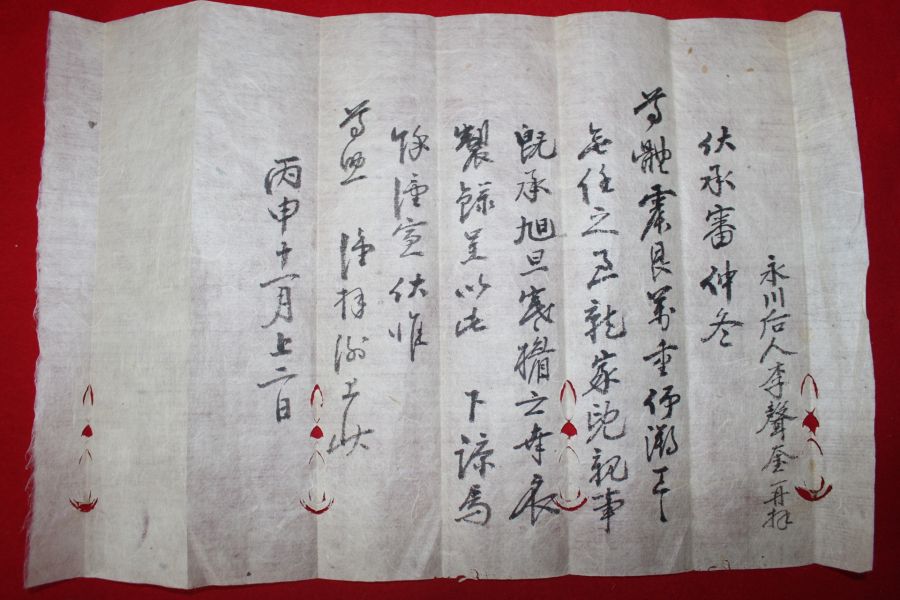 永川后人李聲奎再拜
伏承審仲冬
尊體震艮萬重仰溯區區
無任之至就家兒親事
旣承旭旦寒門之幸衣
製錄呈以此 下諒焉
餘謹宣伏惟
尊照 謹拜謝上狀
丙申十一月上二日